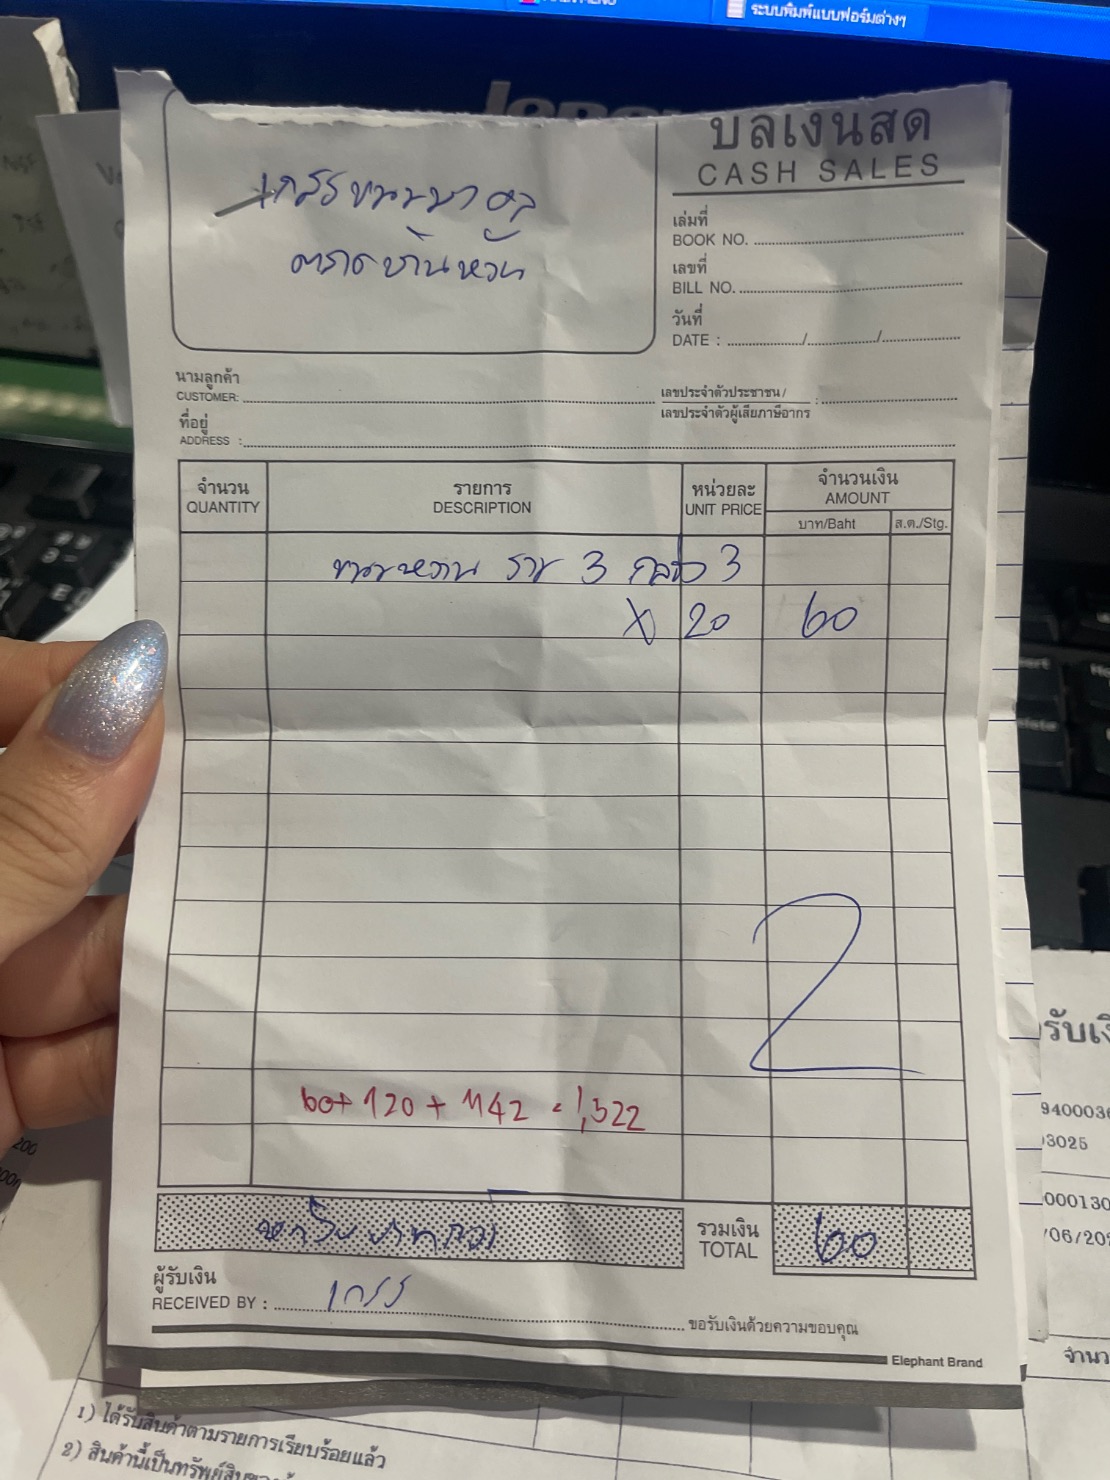 ระบบพิมพ์แบบฟอร์มต่างๆ
lenovo
บิลเงินสด
CASH SALES
ตลาดบ้านหวัก
เล่มที่
BOOK NO.
เลขที่
BILL NO.
วันที่
DATE : / /
นามลูกค้า
CUSTOMER:
เลขประจำตัวประชาชน /
เลขประจำตัวผู้เสียภาษีอากร :
ที่อยู่
ADDRESS :
จำนวน รายการ หน่วยละ จำนวนเงิน
QUANTITY DESCRIPTION UNIT PRICE AMOUNT
บาท/Baht ส.ต./Stg.
ขนมหวาน รวม 3 กล่อง 3
X 20 60
2
60+ 120 + 1142 = 1,322
หกสิบบาทถ้วน รวมเงิน 60
TOTAL
ผู้รับเงิน
RECEIVED BY : เกสร
ขอรับเงินด้วยความขอบคุณ
Elephant Brand
1) ได้รับสินค้าตามรายการเรียบร้อยแล้ว
2) สินค้านี้เป็นทรัพย์สิน
รับเงิ
3025
000130
จำนว